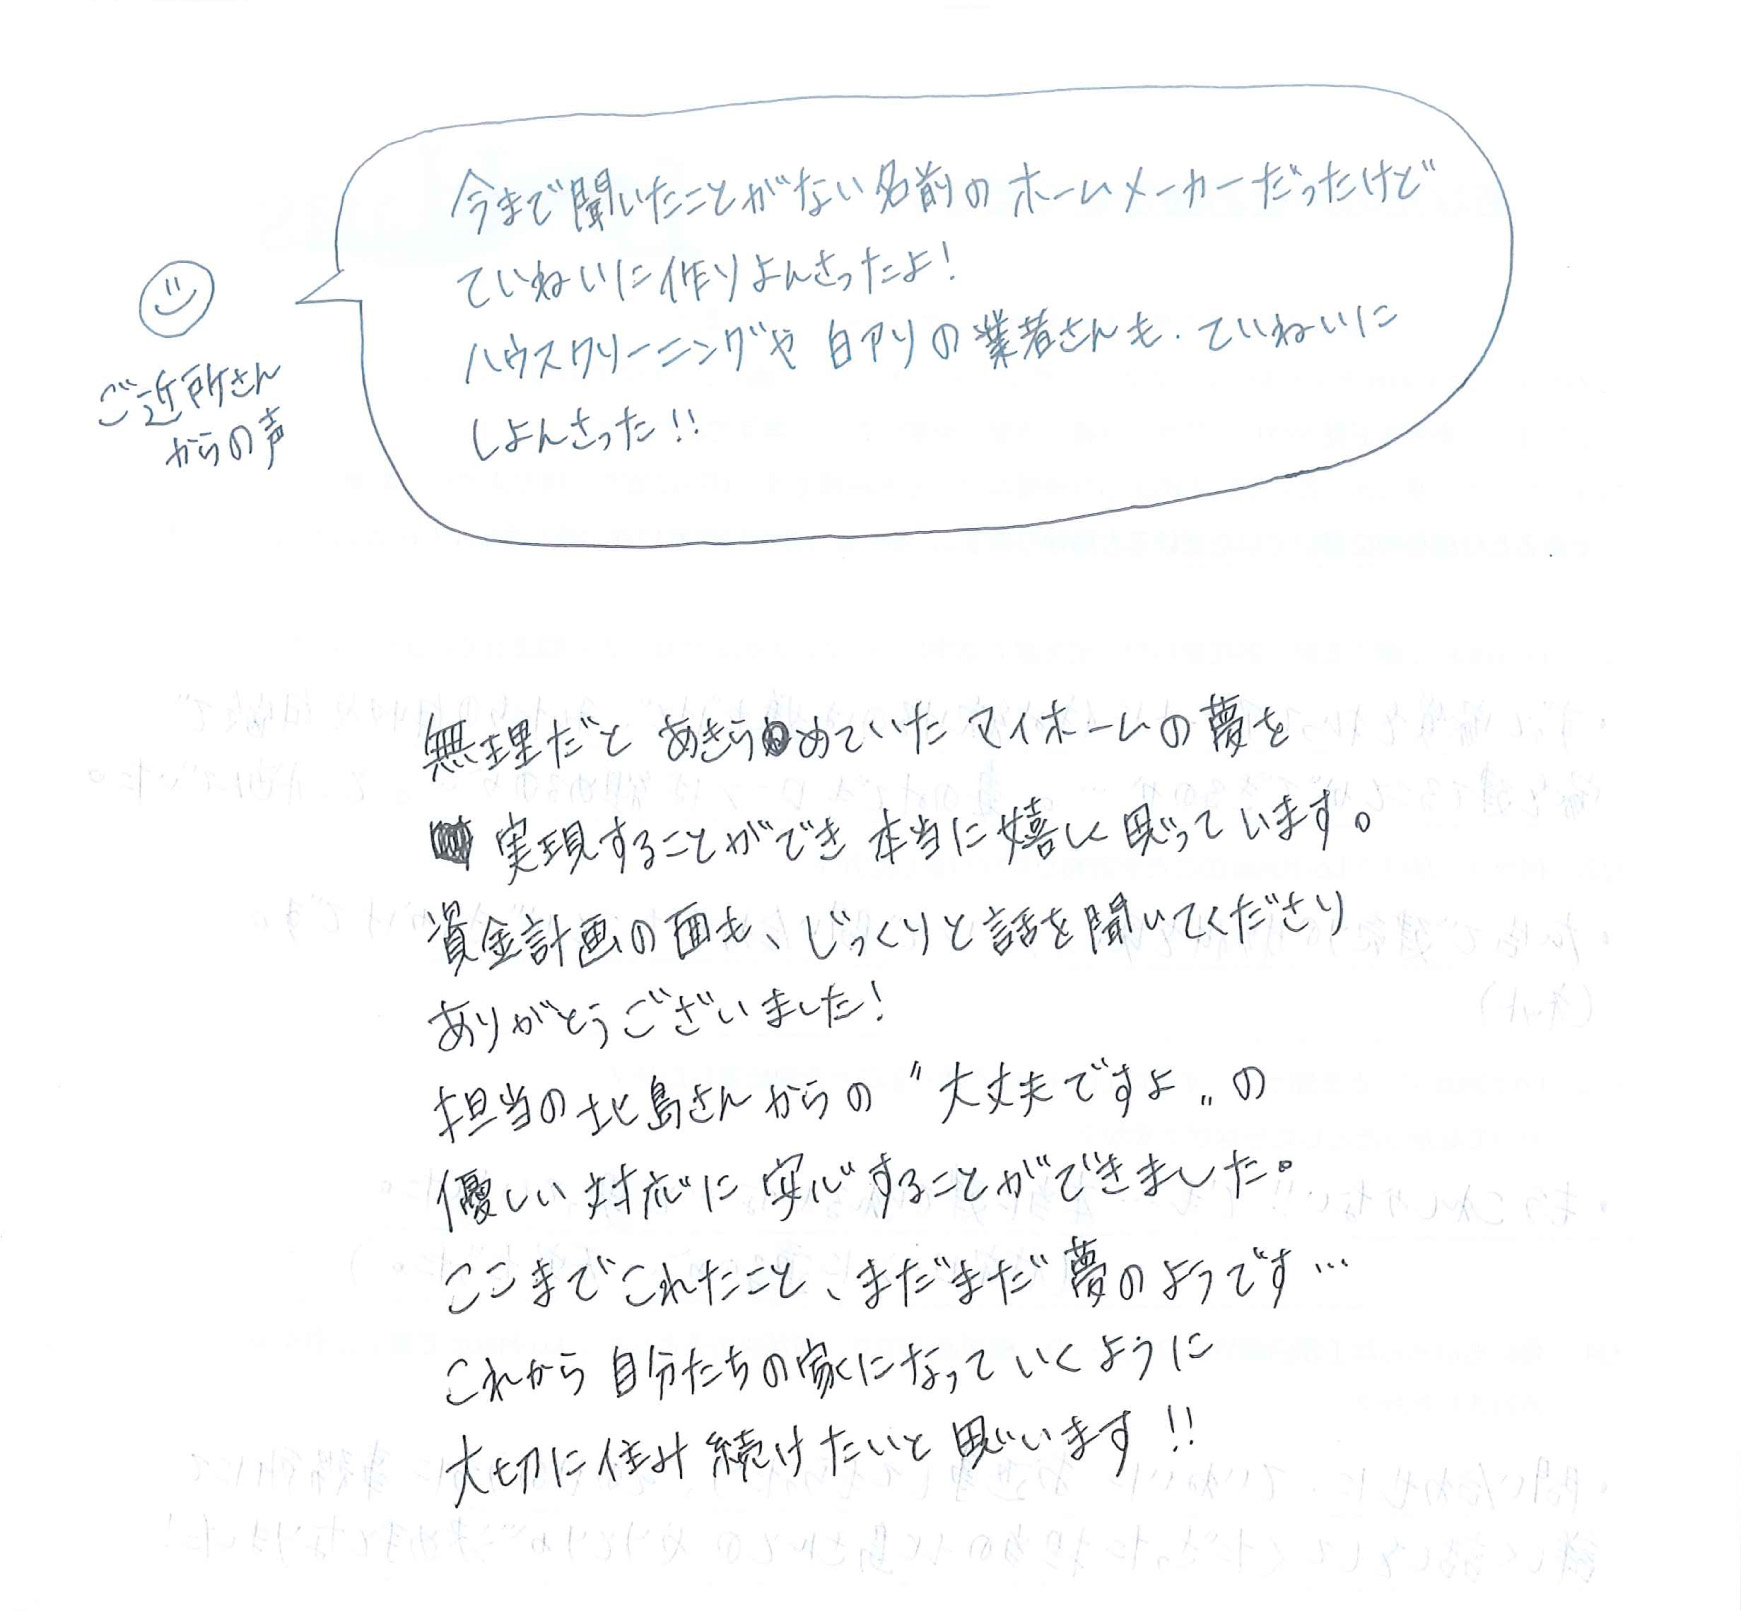 今まで聞いたことがない名前のホームメーカーだったけど
ていねいに作りよんさったよ!
ハウスクリーニングや白アリの業者さんも、ていねいに
しよんさった!!
ご近所さん
からの声
無理だとあきらめていたマイホームの夢を
実現することができ本当に嬉しく思っています。
資金計画の面も、じっくりと話を聞いてくださり
ありがとうございました!
担当の北島さんからの〝大丈夫ですよ〟の
優しい対応に安心することができました。
ここまでこれたこと、まだまだ夢のようです…
これから自分たちの家になっていくように
大切に住み続けたいと思います!!